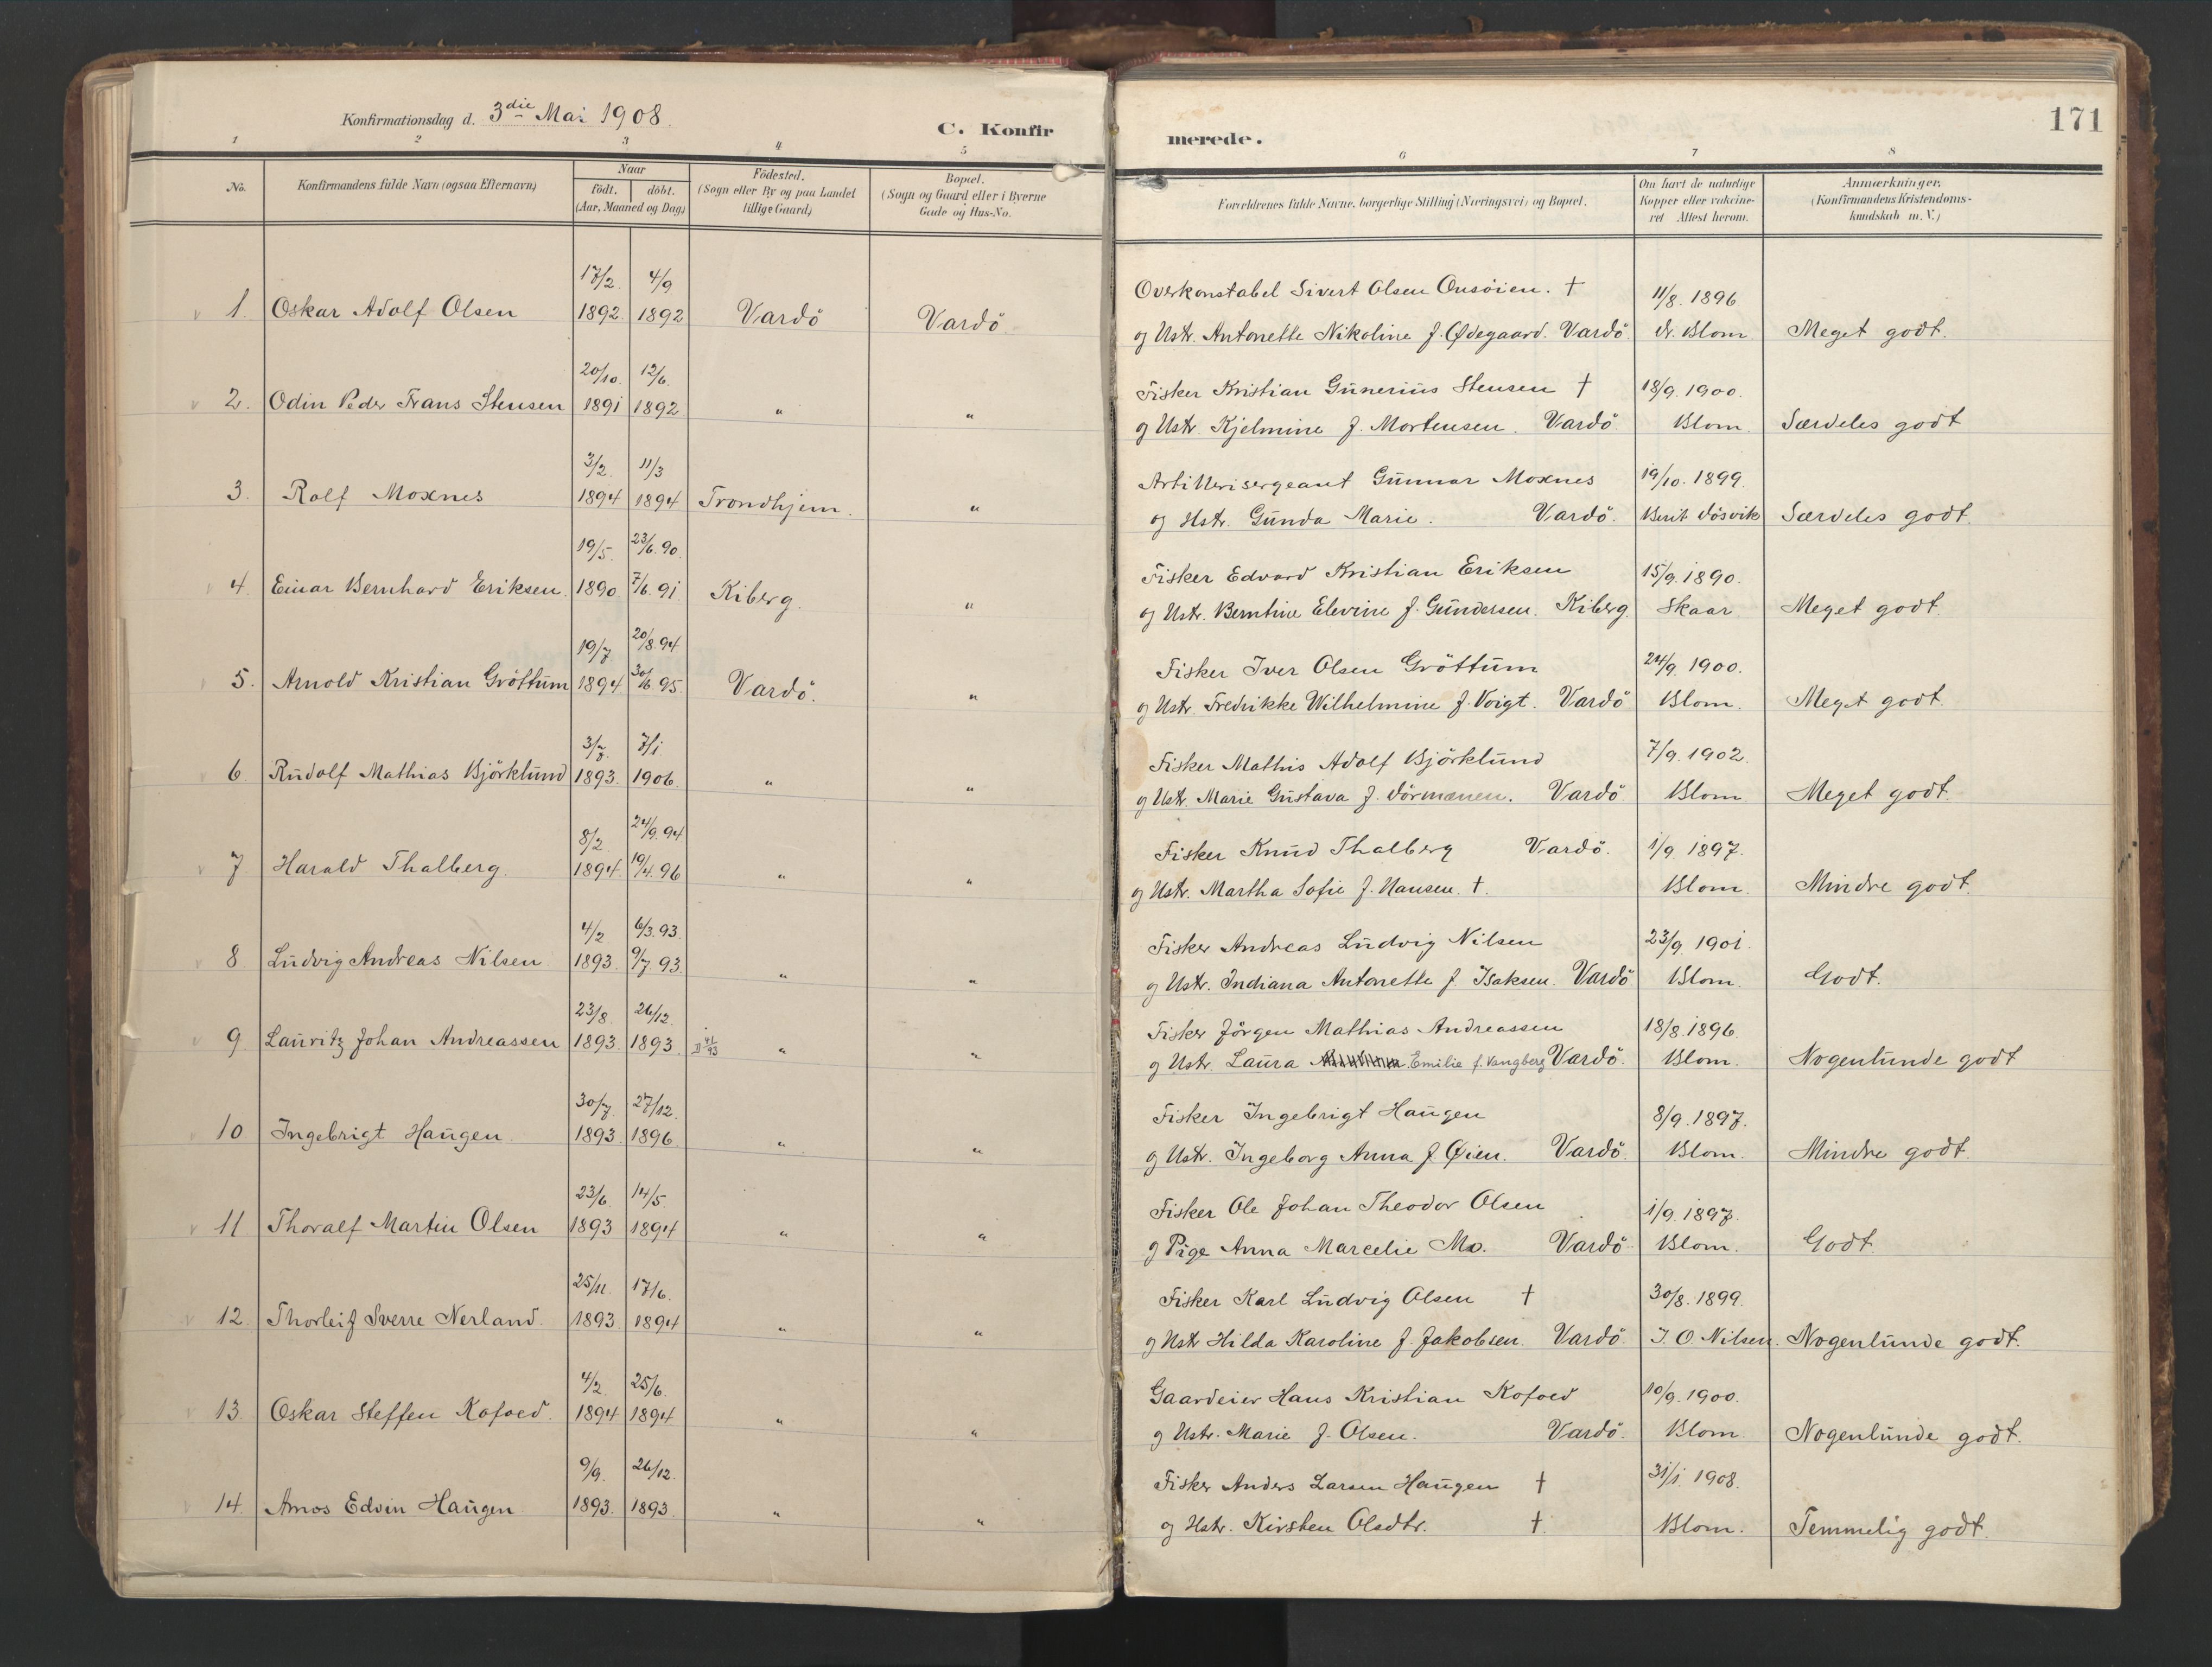 Konfirmationsdag d. 3die Mai 1908.
C. Konfirmerede.
171
1 2 3 4 5 6 7 8
No.
Konfirmandens fulde Navn (ogsaa Efternavn)
Naar
födt. döbt.
(Aar, Maaned og Dag)
Födested.
(Sogn eller By og paa Landet
tillige Gaard)
Bopæl.
(Sogn og Gaard eller i Byerne
Gade og Hus-No.
Forældrenes fulde Navne, borgerlige Stilling (Næringsvei) og Bopæl.
Om havt de naturlige
Kopper eller vakcine-
ret Attest herom.
Anmærkninger.
(Konfirmandens Kristendoms-
kundskab m. V.)
17/2. 4/9 Overkonstabel Sivert Olsen Onsöien. † 11/8. 1896
1. Oskar Adolf Olsen 1892. 1892 Vardö Vardö og Hstr. Antonette Nikoline f. Ødegaard. Vardö. dr. Blom Meget godt.
20/10. 12/6. Fisker Kristian Gunerius Stensen † 18/9. 1900.
2. Odin Peder Frans Stensen 1891 1892 " " og Hstr. Kjelmine f. Mortensen. Vardö. Blom. Særdeles godt
3/2. 11/3 Artillerisergeant Gunnar Moxnes 19/10. 1899.
3. Rolf Moxnes 1894 1894 Trondhjem. " og Hstr. Gunda Marie. Vardö. Berit Dösvik Særdeles godt.
19/5. 23/6. 90. Fisker Edvard Kristian Eriksen 15/9. 1890.
4. Einar Bernhard Eriksen. 1890 7/6. 91. Kiberg. " og Hstr. Berntine Elevine f. Gundersen. Kiberg. Skaar Meget godt.
19/7 20/8. 94 Fisker Iver Olsen Gröttum 24/9. 1900.
5. Arnold Kristian Gröttum 1894 30/6. 95. Vardö. " og Hstr. Fredrikke Wilhelmine f. Voigt. Vardö Blom. Meget godt.
3/7. 7/1 Fisker Mathis Adolf Björklund 7/9. 1902.
6 Rudolf Mathias Björklund 1893. 1906 " " og Hstr. Marie Gustava f. Dörmænen. Vardö Blom Meget godt.
8/2. 24/9. 94 Fisker Knud Thalberg Vardö. 1/9. 1897.
7 Harald Thalberg. 1894. 19/4. 96 " " og Hstr. Martha Sofie f. Hansen. †. Blom. Mindre godt.
4/2 6/3. 93. Fisker Andreas Ludvig Nilsen 23/9. 1901.
8 Ludvig Andreas Nilsen 1893. 9/7. 93. " " og Hstr. Indiana Antonette f. Isaksen. Vardö Blom. Godt.
23/8. 26/12. Fisker Jörgen Mathias Andreassen 18/8. 1896.
9 Lauritz Johan Andreassen 1893. 1893. " " og Hstr. Laura Emilie f. Vangberg Vardö. Blom. Nogenlunde godt
30/7. 27/12. Fisker Ingebrigt Haugen 8/9. 1897.
10 Ingebrigt Haugen. 1893. 1896. " " og Hstr. Ingeborg Anna f. Øien. Vardö. Blom. Mindre godt.
23/6 14/5. Fisker Ole Johan Theodor Olsen 1/9. 1897.
11 Thoralf Martin Olsen 1893 1894 " " og Pige Anna Marcelie Mo. Vardö Blom. Godt.
25/11. 17/6. Fisker Karl Ludvig Olsen † 30/8. 1899.
12. Thorleif Sverre Nerland. 1893. 1894 " " og Hstr Hilda Karoline f. Jakobsen. Vardö. I. O Nilsen. Nogenlunde godt.
4/2. 25/6. Gaardeier Hans Kristian Kofoed 10/9. 1900.
13. Oskar Steffen Kofoed. 1894 1894. " " og Hstr. Marie f. Olsen. Vardö. Blom. Nogenlunde godt.
9/9. 26/12. Fisker Anders Larsen Haugen † 31/1. 1908.
14. Amos Edvin Haugen. 1893. 1893. " " og Hstr. Kirsten Olsdtr. †. Blom. Temmelig godt.